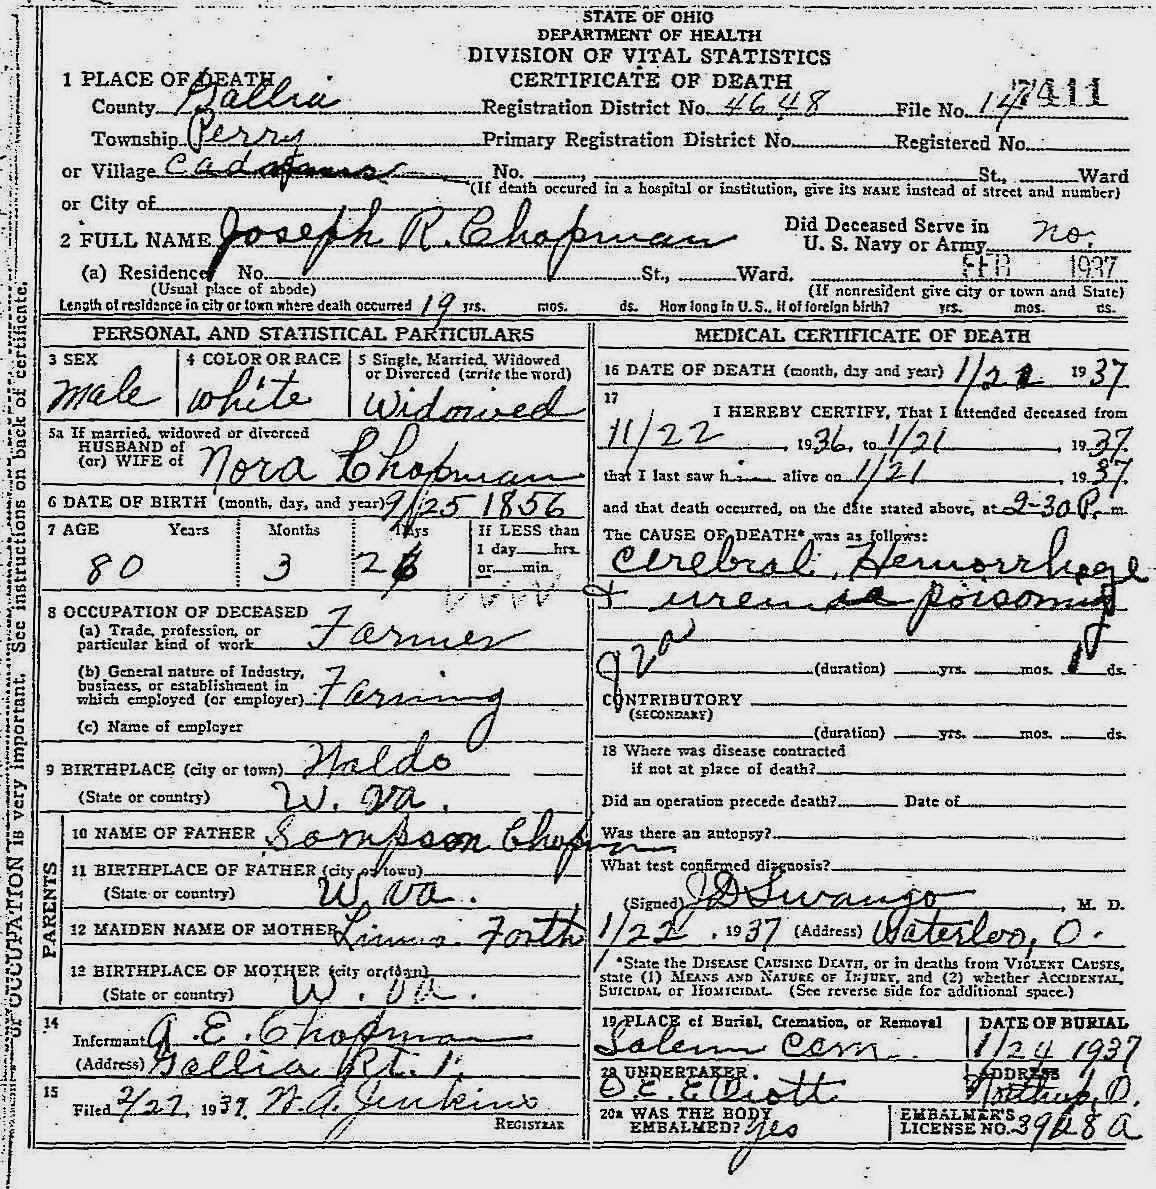 STATE OF OHIO
DEPARTMENT OF HEALTH
DIVISION OF VITAL STATISTICS
CERTIFICATE OF DEATH
1 PLACE OF DEATH
County Gallia Registration District No. 4648 File No. 14 7411
Township Perry Primary Registration District No. Registered No.
or Village Cadmus No. , St., Ward
(If death occured in a hospital or institution, give its NAME instead of street and number)
or City of
2 FULL NAME Joseph R. Chapman Did Deceased Serve in U. S. Navy or Army no.
(a) Residence No. St., Ward. FEB 1937
(Usual place of abode) (If nonresident give city or town and State)
Length of residence in city or town where death occurred 19 yrs. mos. ds. How long in U.S., if of foreign birth? yrs. mos. ds.
PERSONAL AND STATISTICAL PARTICULARS
3 SEX 4 COLOR OR RACE 5 Single, Married, Widowed
or Divorced (write the word)
male white Widowed
5a If married, widowed or divorced
HUSBAND of
(or) WIFE of Nora Chapman
6 DATE OF BIRTH (month, day, and year) 9/25 1856
7 AGE Years Months Days If LESS than
1 day hrs.
or min.
80 3 2
8 OCCUPATION OF DECEASED
(a) Trade, profession, or
particular kind of work Farmer
(b) General nature of Industry,
business, or establishment in
which employed (or employer) Farming
(c) Name of employer
9 BIRTHPLACE (city or town) Waldo
(State or country) W. Va.
PARENTS
10 NAME OF FATHER Sampson Chapman
11 BIRTHPLACE OF FATHER (city or town)
(State or country) W. Va.
12 MAIDEN NAME OF MOTHER Forth
12 BIRTHPLACE OF MOTHER (city or town)
(State or country) W. Va.
14
Informant A. E. Chapman
(Address) Gallia Rt. 1.
15
Filed 2/27, 1937 W. A. Jenkins
REGISTRAR
MEDICAL CERTIFICATE OF DEATH
16 DATE OF DEATH (month, day and year) 1/21 1937
17
I HEREBY CERTIFY, That I attended deceased from
11/22, 1936, to 1/21, 1937.
that I last saw him alive on 1/21, 1937.
and that death occurred, on the date stated above, at 2-30 P. m
The CAUSE OF DEATH* was as follows:
Cerebral Hemorrhage
+ uremic poisoning
(duration) yrs. mos. ds.
CONTRIBUTORY
(SECONDARY)
(duration) yrs. mos. ds.
18 Where was disease contracted
if not at place of death?
Did an operation precede death? Date of
Was there an autopsy?
What test confirmed diagnosis?
(Signed) J D Swango, M. D.
1/22, 1937 (Address) Waterloo, O.
*State the DISEASE CAUSING DEATH, or in deaths from VIOLENT CAUSES,
state (1) MEANS AND NATURE OF INJURY, and (2) whether ACCIDENTAL,
SUICIDAL or HOMICIDAL. (See reverse side for additional space.)
19 PLACE of Burial, Cremation, or Removal DATE OF BURIAL
Salem Cem. 1/24 1937
20 UNDERTAKER ADDRESS
O. E. Elliott Northup, O.
20a WAS THE BODY
EMBALMED? yes
EMBALMER'S
LICENSE NO. A
of OCCUPATION is very important. See instructions on back of certificate.